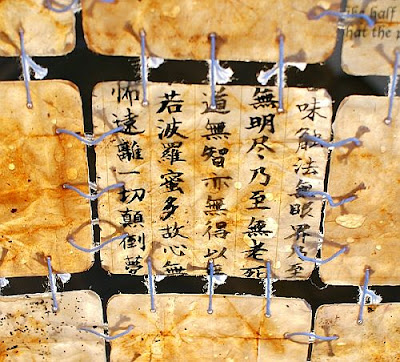 The half
hat the p
味触法無眼界乃至
無明尽乃至無老死
道無智亦無得以
若波羅蜜多故心無
怖遠離一切顛倒夢